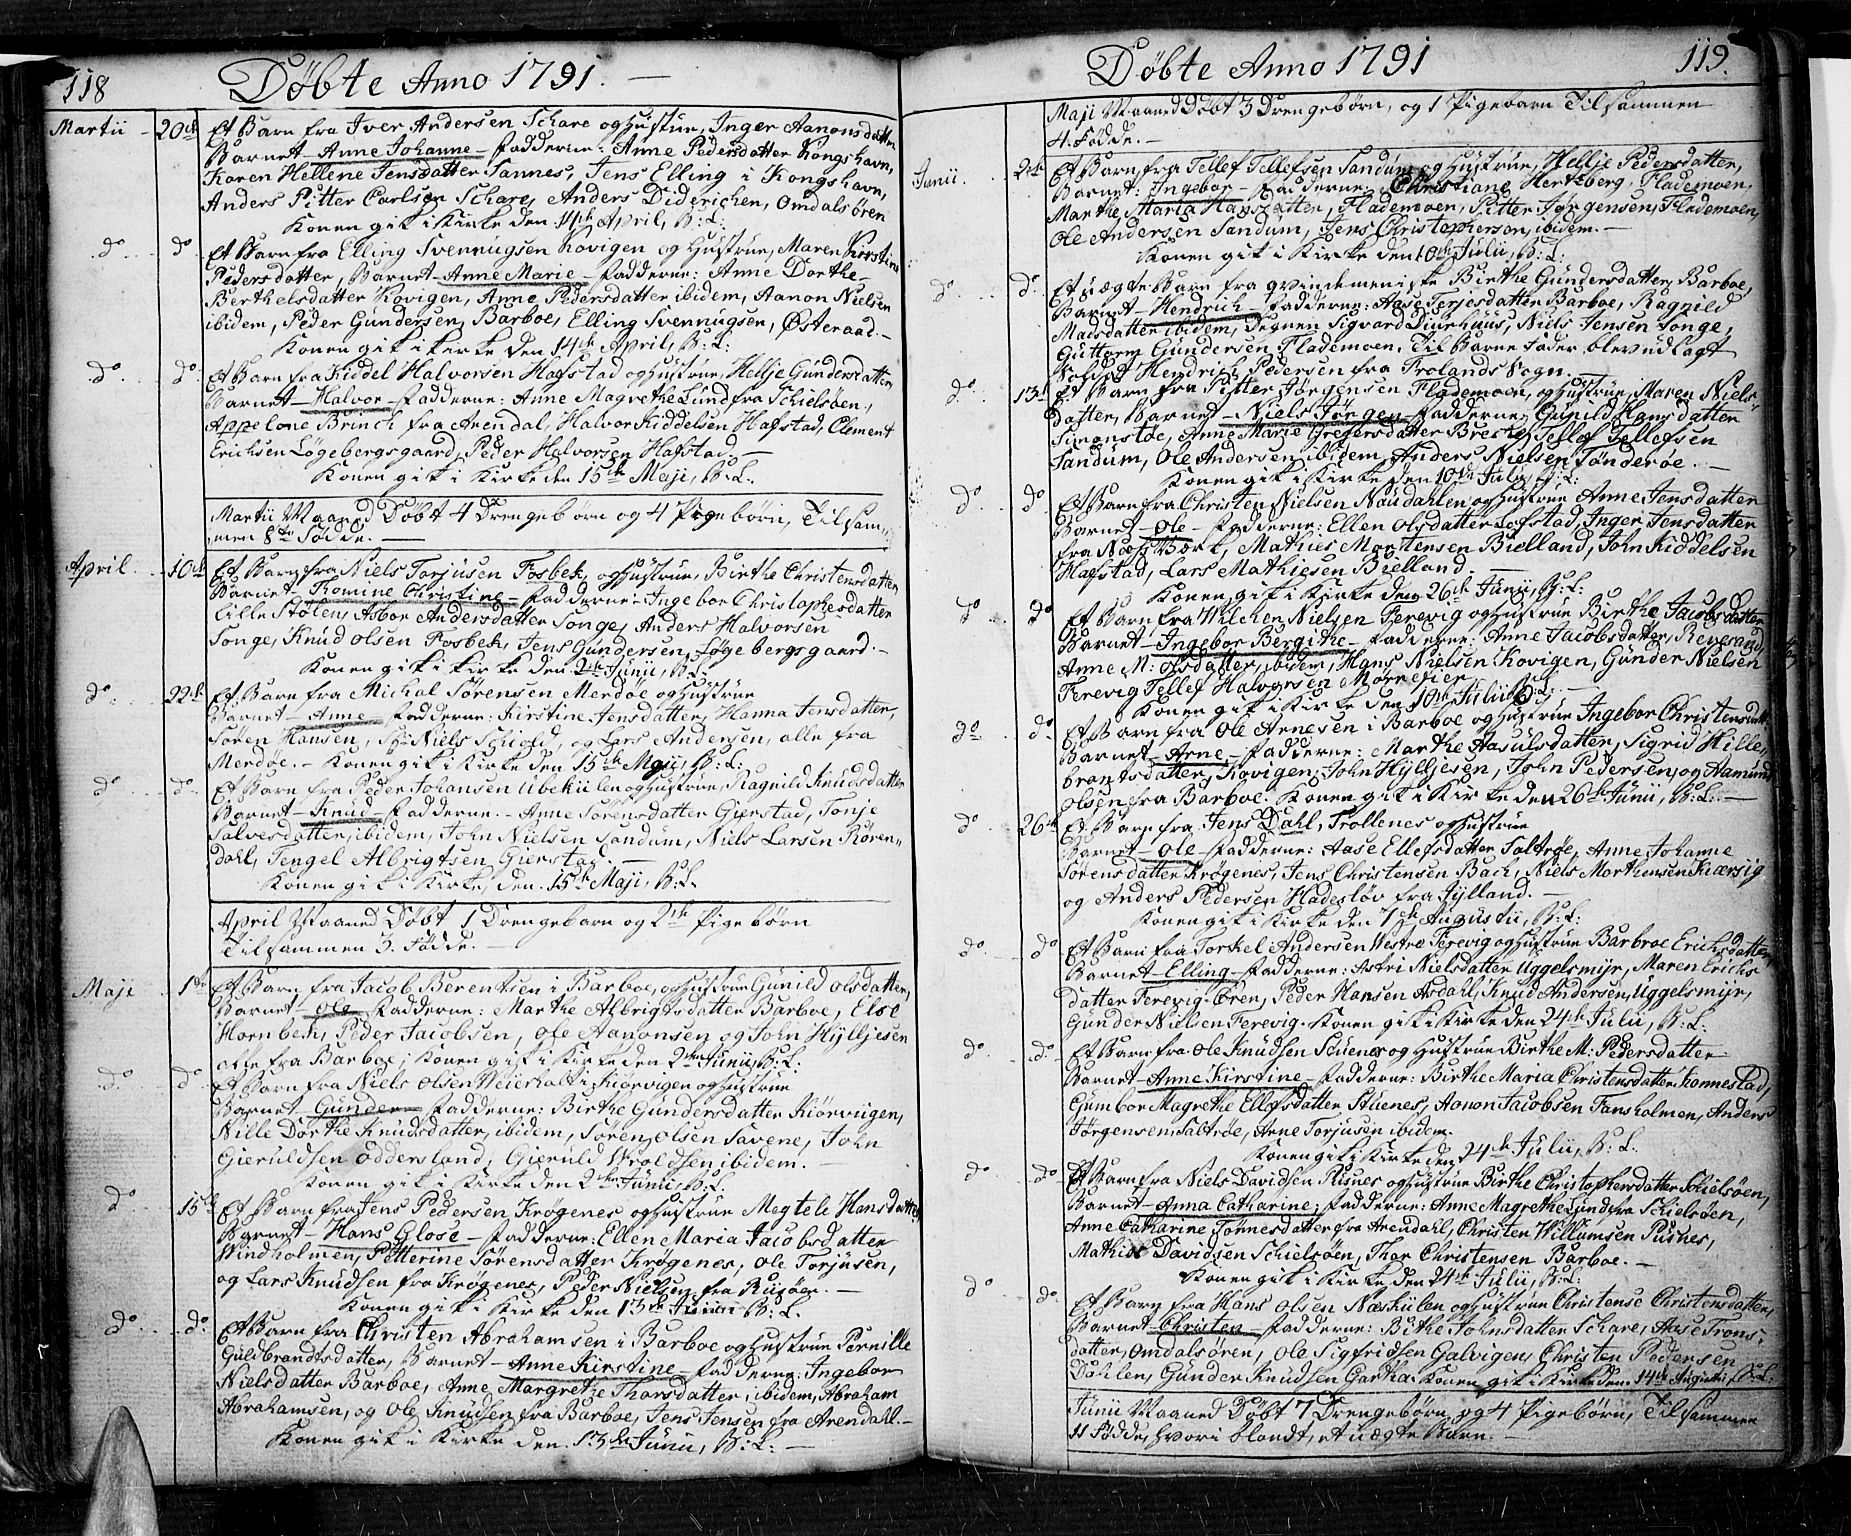 118
Døbte Anno 1791.
Martii 20de Et Barn fra Iver Andersen Schare og Hustrue, Inger Aanonsdatter
Barnet Anne Johanne Fadderne: Anne Pedersdatter Kongshavn,
Karen Hellene Jensdatter Sannes, Jens Elling i Kongshavn,
Anders Pitter Carlsen Schare, Anders Diderichen, Omdalsøren
Konen gik i Kirke den 14de April, B: L:
do do Et Barn fra Elling Svennugsen Kovigen og Hustrue, Maren Kirstine
Pedersdatter, Barnet Anne Marie Fadderne: Anne Dorthe
Berthelsdatter Kovigen, Anne Pedersdatter ibidem, Aanon Nielsen
ibidem, Peder Gundersen, Barboe, Elling Svennugsen, Østeraad.
Konen gik i Kirke den 14de April, B: L:
do do Et Barn fra Kiddel Halvorsen Hafstad og Hustrue, Hellje Gundersdatter,
Barnet Halvor Fadderne: Anne Magrethe Lund fra Schielsøen,
Appelone Brinch fra Arendal, Halvor Kiddelsen Hafstad, Clement
Erichsen Løgebergsgaard, Peder Halvorsen Hafstad.
Konen gik i Kirke den 15de Maji, B: L.
Martii Maaned Døbt 4 Drengebørn og 4 Pigebørn, Tilsam
men 8te Fødde.
April 10de Et Barn fra Niels Torjusen Fosbek, og Hustrue, Birthe Christensdatter,
Barnet Romine Christine Fadderne: Ingebor Christophersdatter
Lille Stølen, Asbor Andersdatter Songe, Anders Halvorsen
Songe, Knud Olsen Fosbek, Jens Gundersen, Løgebergsgaard.
Konen gik i Kirke den 2den Junii, B: L:
do 22de Et Barn fra Michal Sørensen Merdøe og Hustrue
Barnet Anne Fadderne: Kirstine Jensdatter, Hanna Jensdatter,
Søren Hansen, Niels Schiold, og Lars Andersen, alle fra
Merdøe. Konen gik i Kirke den 15de Maji, B: L:
do do Et Barn fra Peder Johansen Ubekulen og Hustrue, Ragnild Knudsdatter
Barnet Knud Fadderne. Anne Sørensdatter Gierstad, Tonje
Salvesdatter, ibidem, John Nielsen Sandum, Niels Larsen Røren
dahl, Tengel Albrigtsen Gierstad.
Konen gik i Kirke, den. 15de Maji, B: L.
April Maaned Døbt 1 Drengebarn og 2de Pigebørn
Tilsammen 3. Fødde.
Maji 1ste Et Barn fra Jacob Berentsen i Barboe, og Hustrue Gunild Olsdatter,
Barnet Ole Fadderne: Marthe Albrigtsdatter Barboe, Else
Hornbek, Peder Jacobsen, Ole Aanonsen og John Hylljesen
alle fra Barboe; Konen gik i Kirke den 2den Junii, B: L:
do do Et Barn fra Niels Olsen Weierholt i Kiørvigen og Hustrue
Barnet Gunder Fadderne: Birthe Gundersdatter Kiørvigen,
Nille Dorthe Knudsdatter, ibidem, Søren Olsen Savene, John
Gieruldsen Oddersland, Gieruld Wroldsen ibidem.
Konen gik i Kirke den 2den Junii, B: L.
do 15de Et Barn fra Jens Pedersen Krøgenes og Hustrue Megtele Hansdatter
Barnet Hans Glose Fadderne: Ellen Maria Jacobsdatter
Windholmen, Petterine Sørensdatter Krøgenes, Ole Torjusen,
og Lars Knudsen fra Krøgenes, Peder Nielsen fra Ruisøen.
Konen gik i Kirke den 13de Junii B: L.
do do Et Barn fra Christen Abrahamsen i Barboe og Hustrue Pernille
Guldbrandtsdatter, Barnet Anne Kirstine Fadderne: Ingebor
Nielsdatter Barboe, Anne Margretze Thorsdatter, ibidem, Abraham
Abrahamsen, og Ole Knudsen fra Barboe, Jens Jensen fra Arendahl.
Konen gik i Kirke den. 13de Junii, B: L:
119.
Døbte Anno 1791
Maji Maaned Døbt 3 Drengebørn, og 1 Pigebarn Tilsammen
4. Fødde.
Junii. 2de Et Barn fra Tellef Tellefsen Sandum og Hustrue, Hellje Pedersdatter,
Barnet: Ingebor Fadderne: Christiane Hertzberg, Flademoen,
Marthe Maria Hansdatter, Flademoen, Pitter Jørgensen, Flademoen,
Ole Andersen Sandum, Jens Christophersen, ibidem.
Konen gik i Kirke den 10de Julii, B: L:
do do Et uægte Barn fra Qvindemeniske Birthe Gundersdatter, Barboe,
Barnet Hendrich Fadderne: Aase Terjesdatter Barboe, Ragnild
Madsdatter ibidem, Degnen Sigvard Duurhuus, Niels Jensen Songe,
Guttorm Gundersen, Flademoen. Til Barne Fader blev udlagt
Soldat Hendrich Pedersen fra Frolands Sogn.
do 13de Et Barn fra Pitter Jørgensen Flademoen, og Hustrue, Maren Niels
datter, Barnet Niels Jørgen Fadderne: Gunild Hansdatter
Simonstøe, Anne Marie Gregersdatter Brecke, Tellef Tellefsen
Sandum, Ole Andersen ibidem, Anders Nielsen Tønderøe.
Konen gik i Kirke den 10de Julii, B: L:
do do Et Barn fra Christen Nielsen Naudahlen og Hustrue Anne Jensdatter
Barnet Ole Fadderne: Ellen Olsdatter Lofstad, Inger Jensdatter
fra Næss Værk, Mathies Mortensen Bielland, John Kiddelsen
Hafstad, Lars Mathiesen Bielland.
Konen gik i Kirke den 26de Junii, B: L:
do do Et Barn fra Wilchen Nielsen Ferevig og Hustrue Birthe Jacobsdatter
Barnet Ingebor Bergithe Fadderne: Anne Jacobsdatter, Revesand,
Anne M: Olsdatter, ibidem, Hans Nielsen Kovigen, Gunder Nielsen
Ferevig Tellef Halvorsen Mørrefier
Konen gik i Kirke den 10de Julii B: L:
do do Et Barn fra Ole Arnesen i Barboe og Hustrue Ingebor Christensdatt
Barnet Arne Fadderne: Marthe Aasulsdatter, Sigrid Hille
brantsdatter, Kovigen, John Hylljesen, John Pedersen, og Aamund
Olsen fra Barboe. Konen gik i Kirke den 26de Junii, B: L:
do 26de Et Barn fra Jens Dahl, Trollenes og Hustrue
Barnet Ole Fadderne: Aase Ellefsdatter Saltrøe, Anne Johanne
Sørensdatter Krøgenes, Jens Christensen Bach, Niels Morthensen Kiærsig
og Anders Pedersen Hadesløv fra Jylland.
Konen gik i Kirke den 7de Augustii, B: L:
do do Et Barn fra Torkel Andersen Westre Ferevig og Hustrue Barbroe Erichsdatter,
Barnet Elling Fadderne: Astri Nielsdatter Uggelsmyr, Maren Erichs
datter Ferevig-Ören, Peder Hansen Asdahl, Knud Andersen, Uggelsmyr,
Gunder Nielsen Ferevig. Konen gik i Kirke den 24de Julii, B: L:
do do Et Barn fra Ole Knudsen Stuenes og Hustrue Birthe M: Pedersdatter
Barnet Anne Kirstine Fadderne: Birthe Maria Christensdatter Konnestad,
Gumbor Magrethe Ellefsdatter Stuenes, Aanon Jacobsen Fansholmen, Anders
Jørgensen, Saltrøe, Arne Torjusen ibidem.
Konen gik i Kirke den 24de Julii, B: L.
do do Et Barn fra Niels Davidsen Rusnes og Hustrue Birthe Christophersdatter Schielsøen,
Barnet Anna Catharine, Fadderne: Anne Magrethe Lund fra Schielsøen,
Anne Catharine Tønnesdatter fra Arendahl, Christen Willumsen Pusnes,
Mathias Davidsen Schielsøen, Thor Christensen Barboe.
Konen gik i Kirke, den 24de Julii, B: L:
do do Et Barn fra Hans Olsen Næskulen og Hustrue Christense Christensdatter,
Barnet Christen Fadderne: Birthe Johnsdatter Schare, Aase Trons
datter, Omdalsøren, Ole Sigfridsen Galvigen, Christen Pedersen
Dahlen, Gunder Knudsen Gartha. Konen gik i Kirke den. 14de Augustii B: L.
Junii Maaned Døbt 7 Drengebørn, og 4 Pigebørn, Tilsammen
11 Fødde, hvori blandt, et uægte Barn.